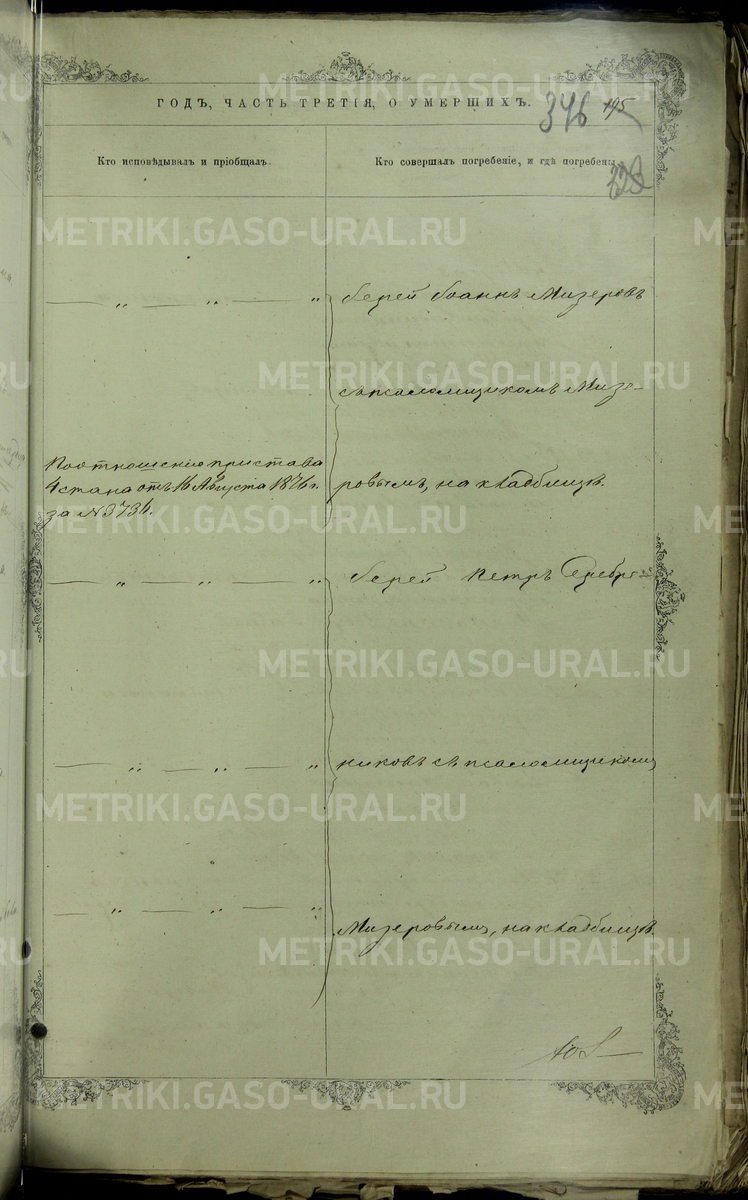 ГОДЪ, ЧАСТЬ ТРЕТІЯ, О УМЕРШИХЪ.
346 195
Кто исповѣдывалъ и пріобщалъ.
Кто совершалъ погребеніе, и гдѣ погребены.
— „ „ — „
Іерей Іоаннъ Мизеровъ
съ псаломщикомъ Мизе-
ровымъ, на кладбищѣ.
По отношенію пристава
4 стана отъ 16 Августа 1876 г.
за № 3736.
— „ — „ — „
Іерей Петръ Серебре-
никовъ съ псаломщикомъ
— „ — „ — „
Мизеровымъ, на кладбищѣ.
— „ — „ — „
METRIKI.GASO-URAL.RU
METRIKI.GASO-URAL.RU
METRIKI.GASO-URAL.RU
METRIKI.GASO-URAL.RU
METRIKI.GASO-URAL.RU
METRIKI.GASO-URAL.RU
METRIKI.GASO-URAL.RU
METRIKI.GASO-URAL.RU